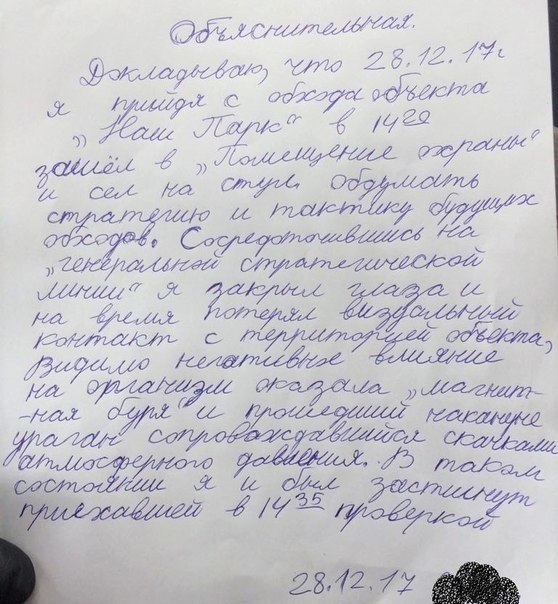 Объяснительная.
Докладываю, что 28.12.17г
я прийдя с обхода объекта
„Наш Парк“ в 14 20
зашёл в „Помещение охраны“
и сел на стул. обдумать
стратегию и тактику будущих
обходов. Сосредоточившись на
„генеральной стратегической
линии“ я закрыл глаза и
на время потерял визуальный
контакт с территорией объекта,
Видимо негативное влияние
на организм оказала „магнит-
-ная буря“ и прошедший накануне
ураган сопровождавшийся скачками
атмосферного давления. В таком
состоянии я и был застигнут
приехавшей в 14 35 проверкой
28.12.17